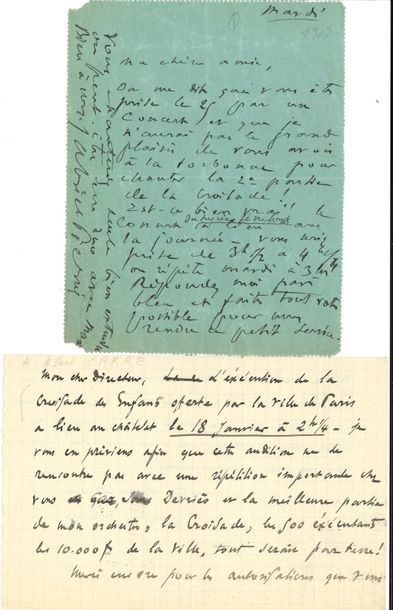 Mardi
1912
Ma chère amie,
On me dit que vous êtes
prise le 25 par un
Concert, et que je
n'aurai pas le grand
plaisir de vous avoir
à la Sorbonne pour
chanter la 2e partie
de la Croisade!
Est-ce bien vrai? le
Concert a lieu dans
la journée - vous
prise de 3h 1/2 à 4h
on répète mardi à
Répondez moi par
bleu et faites tout votre
possible pour
rendre ce petit service.
Vous chanteriez seule bien entendu
ou peut-être un duo avec
Bien à vous Gabriel Pierné
A Albert CARRÉ
Mon cher Directeur, l'exécution de la
Croisade des Enfants offerte par la Ville de Paris
a lieu au châtelet le 18 Janvier à 2h 1/4 - je
vous en préviens afin que cette audition ne se
rencontre pas avec une répétition importante chez
vous Devriès et la meilleure partie
de mon orchestre, la Croisade, les 500 éxécutants
les 10.000f de la Ville, tout serait par terre!
Merci encore pour les autorisations que vous